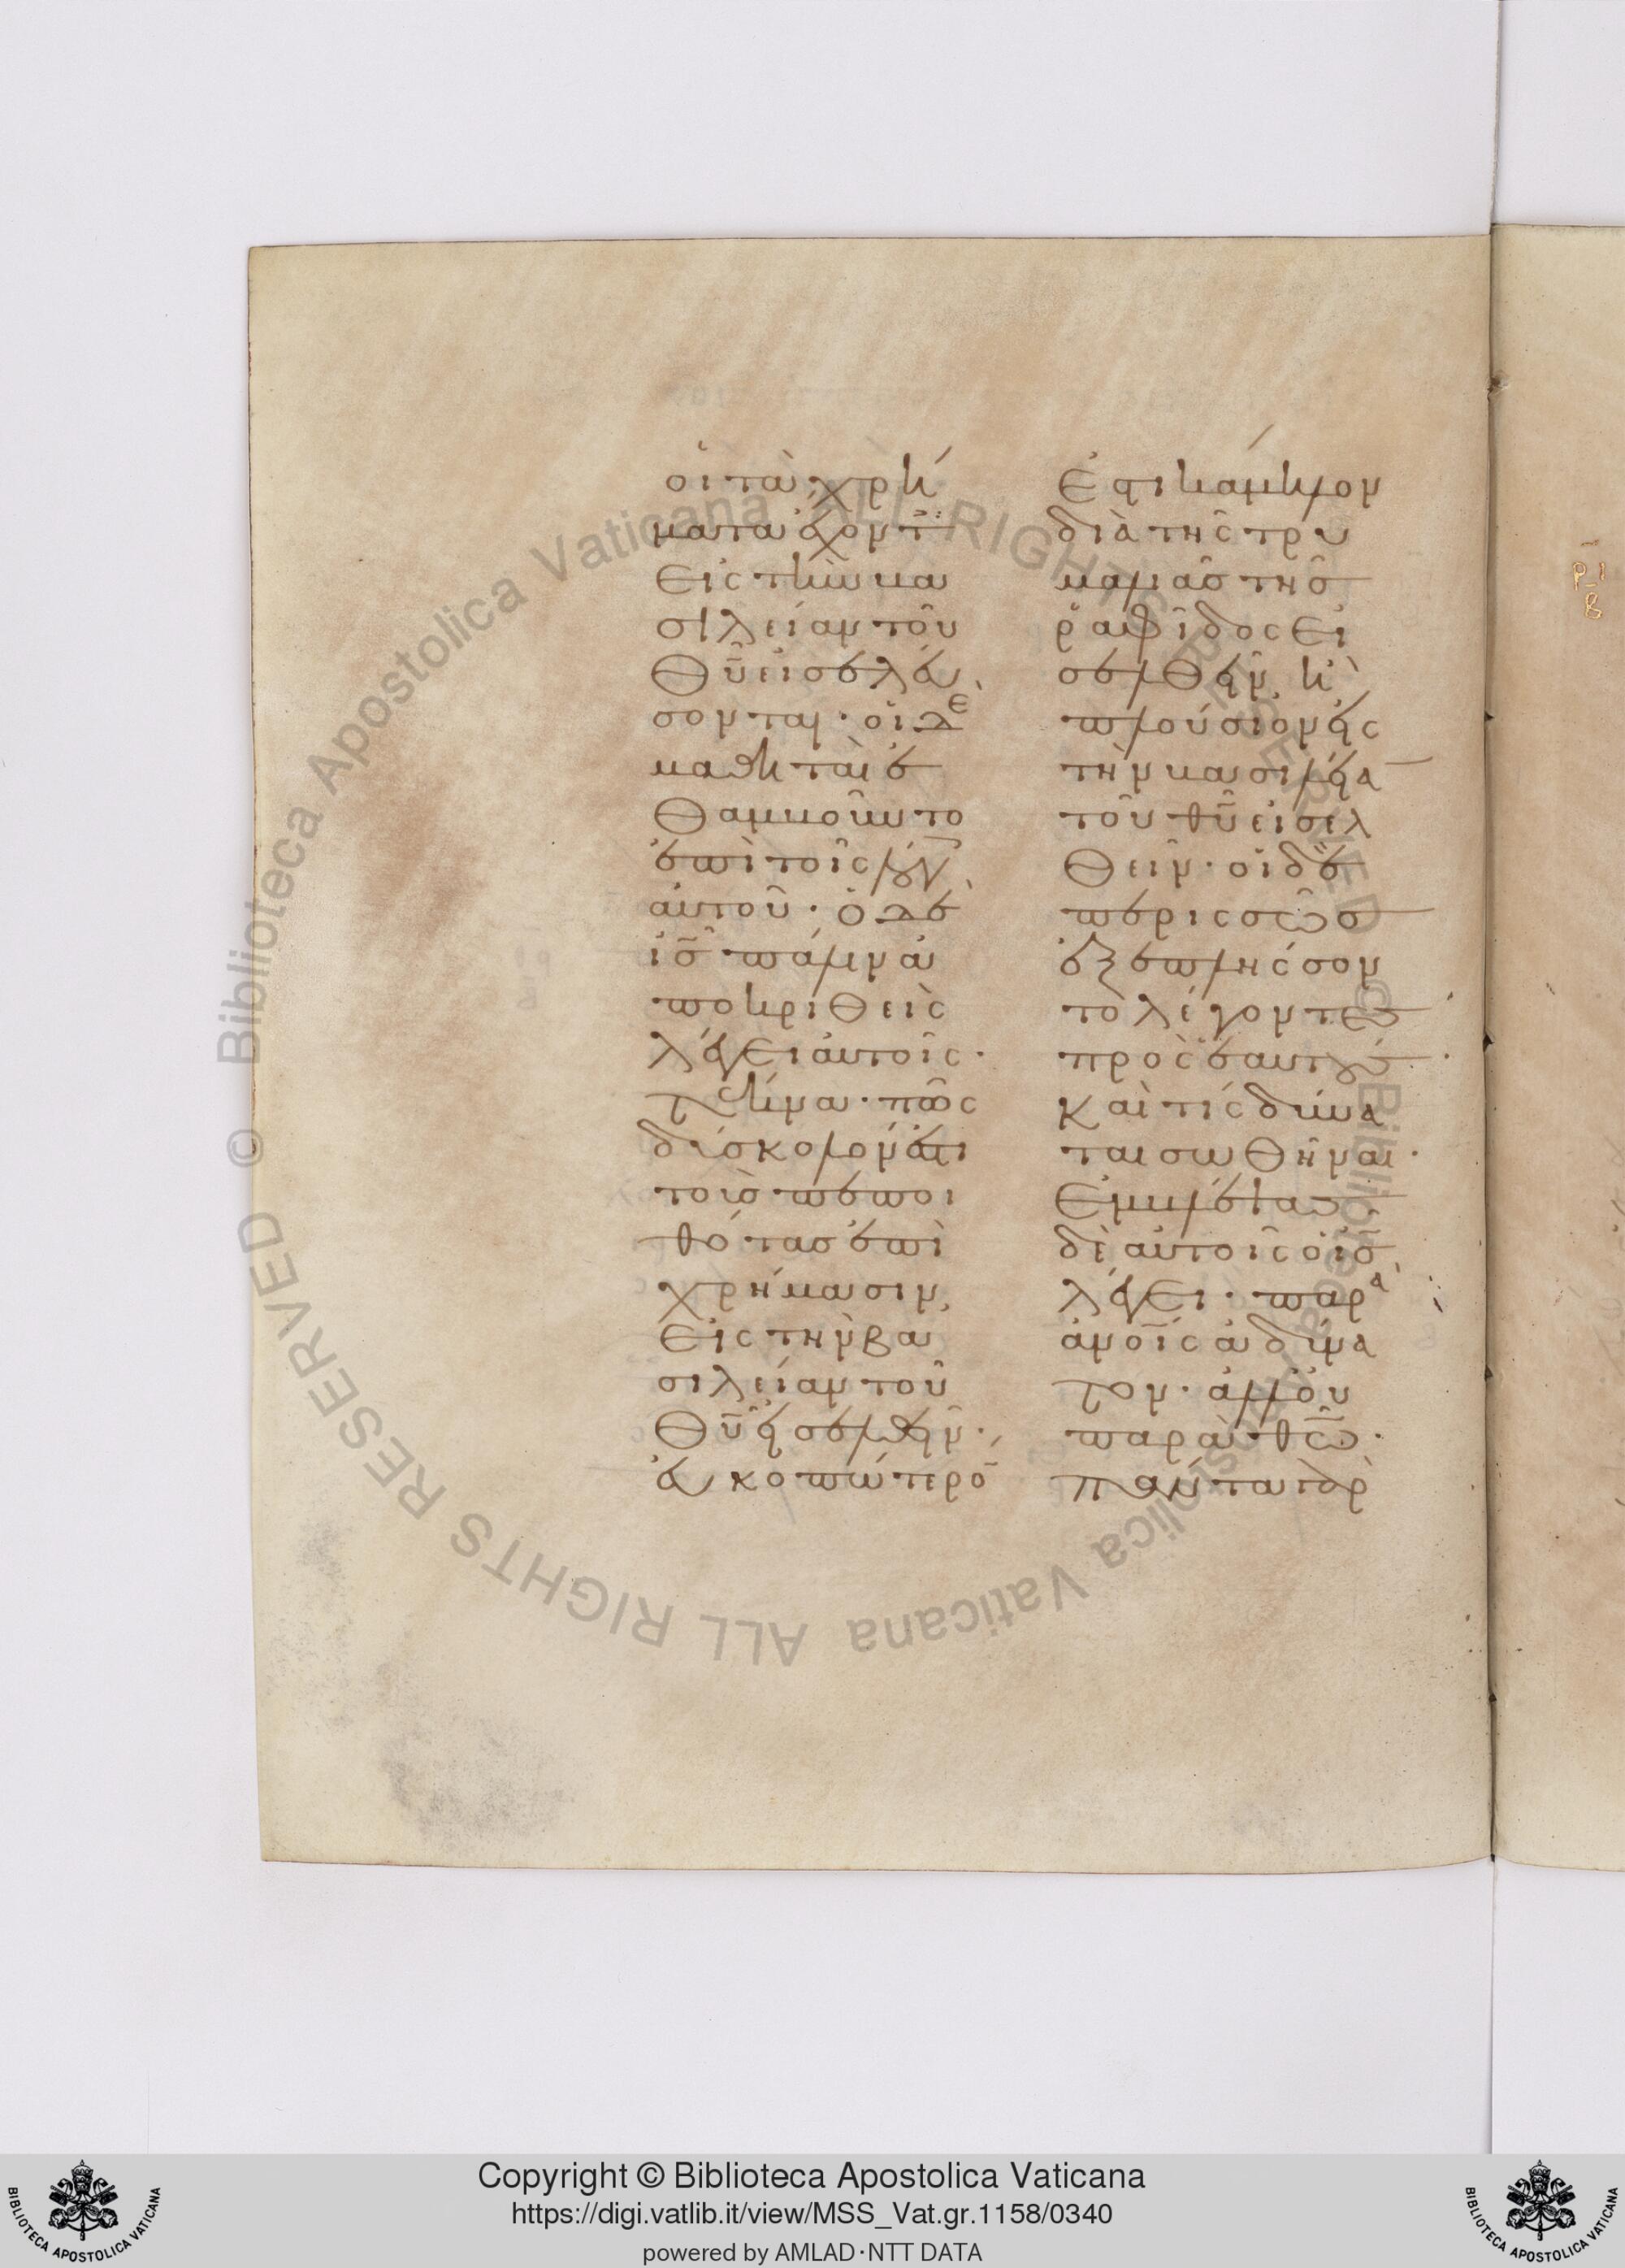 οἱ τὰ χρή
ματα ἔχοντ
εἰς τὴν βα
σιλείαν τοῦ
θῦ εἰσελεύ
σονται· οἱ δὲ
μαθηταὶ ἐ
θαμβοῦντο
ἐπὶ τοῖς λόγ
αὐτοῦ· ὁ δὲ
ις πάλιν ἀ
ποκριθεὶς
λέγει αὐτοῖς·
τέκνα· πῶς
δύσκολόν ἐστι
τοὺς πεποι
θότας ἐπὶ
χρήμασιν,
εἰς τὴν βα
σιλείαν τοῦ
θῦ εἰσελθεῖν·
εὐκοπώτερο
ἐστι κάμηλον
διὰ τῆς τρυ
μαλιᾶς τῆς
ῥαφίδος εἰ
σελθεῖν, ἢ
πλούσιον εἰς
τὴν βασιλεία
τοῦ θῦ εἰσελ
θεῖν· οἱ δὲ
περισσῶς
ἐξεπλήσσον
το λέγοντες
πρὸς ἑαυτούς·
καὶ τίς δύνα
ται σωθῆναι·
ἐμβλέψας
δὲ αὐτοῖς ὁ ις
λέγει· παρὰ
ἀνοις ἀδύνα
τον· ἀλλ' οὐ
παρὰ θῶ·
πάντα γὰρ
ρι
β
Copyright © Biblioteca Apostolica Vaticana
https://digi.vatlib.it/view/MSS_Vat.gr.1158/0340
powered by AMLAD·NTT DATA
BIBLIOTECA APOSTOLICA VATICANA
BIBLIOTECA APOSTOLICA VATICANA
© Biblioteca Apostolica Vaticana ALL RIGHTS RESERVED
© Biblioteca Apostolica Vaticana ALL RIGHTS RESERVED